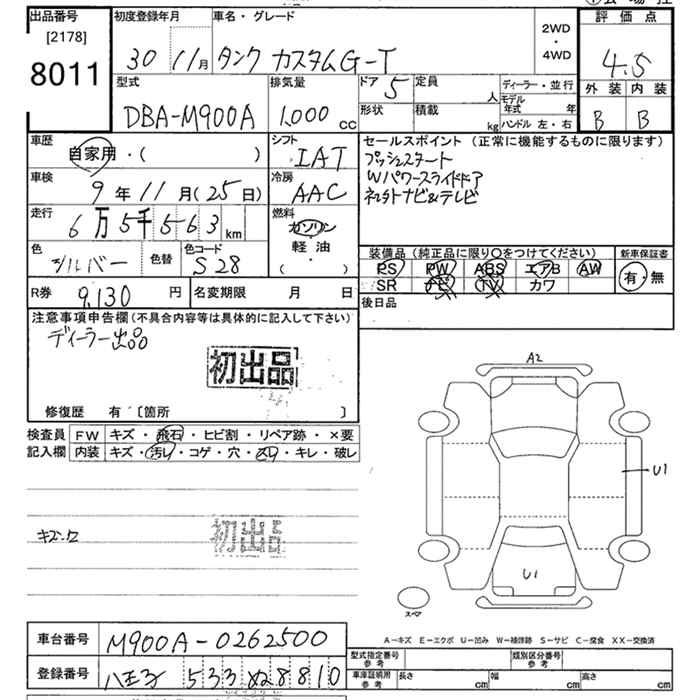 出品番号 初度登録年月 車名・グレード 2WD・4WD 評価点
[2178]
8011 30 11月 タンク カスタムG-T 4.5
型式 排気量 ドア 5 定員 人 ディーラー・並行 外装 内装
DBA-M900A 1,000 cc 形状 積載 kg モデル年式 年 ハンドル 左・右 B B
車歴 自家用・( ) シフト IAT セールスポイント (正常に機能するものに限ります)
プッシュスタート
車検 9年11月(25日) 冷房 AAC Wパワースライドドア
走行 6万5千563km 燃料 ガソリン・軽油・( )
色 シルバー 色替 色コード S28 装備品 (純正品に限り○をつけてください) 新車保証書
PS PW ABS エアB AW 有・無
R券 9,130円 名変期限 月 日 SR ナビ TV カワ
注意事項申告欄(不具合内容等は具体的に記入して下さい) 後日品
ディーラー出品
初出品
A2
修復歴 有〔箇所 〕
検査員 FW キズ・飛石・ヒビ割・リペア跡・×要
記入欄 内装 キズ・汚レ・コゲ・穴・スレ・キレ・破レ
U1
初出品
U1
スペア
A-キズ E-エクボ U-凹み W-補修跡 S-サビ C-腐食 XX-交換済
車台番号 M900A-0262500 型式指定番号 参考 類別区分番号 参考
登録番号 八王子 533 ぬ 8810 車庫証明用 参考 長さ cm 幅 cm 高さ cm